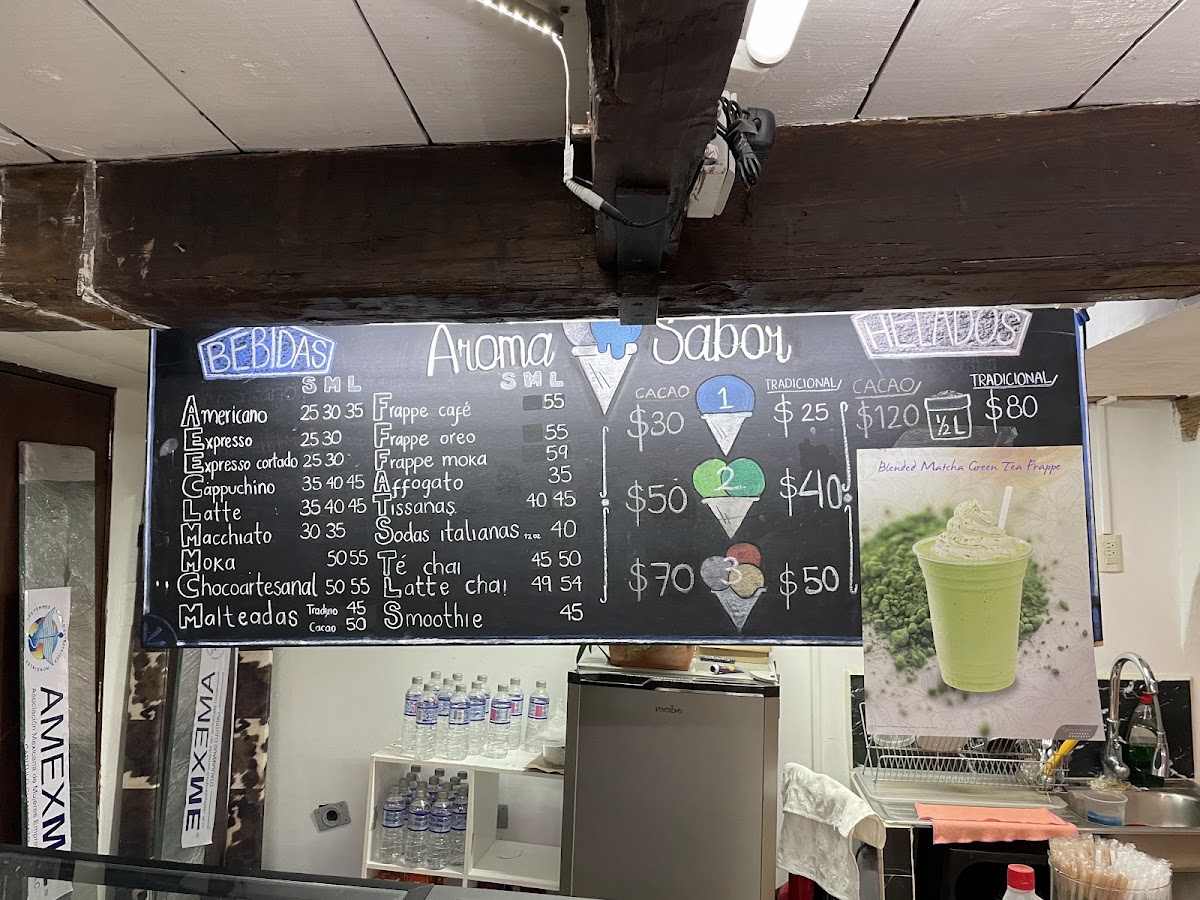 BEBIDAS
Aroma Sabor
HELADOS
S M L
Americano 25 30 35
Expresso 25 30
Expresso cortado 25 30
Cappuchino 35 40 45
Latte 35 40 45
Macchiato 30 35
Moka 50 55
Chocoartesanal 50 55
Malteadas
Cacao 45
50
S M L
Frappe café 55
Frappe oreo 55
Frappe moka 59
Affogato 35
Tissanas 40 45
Sodas italianas 12 oz 40
Té chai 45 50
Latte chai 49 54
Smoothie 45
CACAO TRADICIONAL
$30 1 $25
$50 2 $40
$70 3 $50
CACAO TRADICIONAL
$120 1/2 L $80
Blended Matcha Green Tea Frappe
mabe
AMEXME
AMEXM
Asociación Mexicana de Mujeres